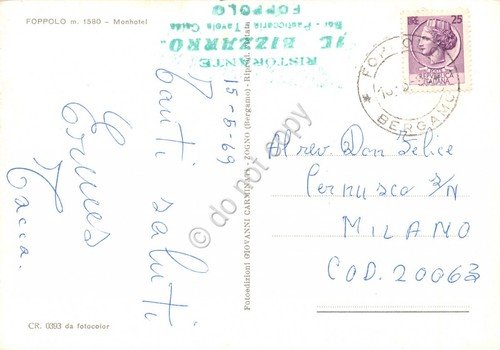 FOPPOLO m. 1580 - Monhotel
RISTORANTE
IL BIZZARRO
Bar - Pasticceria - Tavola Calda
FOPPOLO
LIRE 25
FOPPOLO
BERGAMO
15-8-69
Tanti saluti
Ermes
Tacca.
Rev. Don Felice
Cernusco s/N
MILANO
COD. 20063
Fotoedizioni GIOVANNI CARMINATI - ZOGNO (Bergamo) - Riprod. vietata
do not copy
CR. 0393 da fotocolor